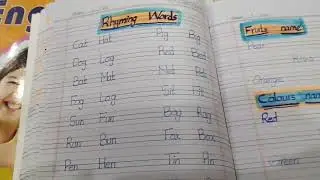 Eng
Rhyming Words
Cat Hat Pig Big
Dog Log Rest Best
Bat Mat Net Pet
Fog Log Sit Bit
Sun Fun Bag Rag
Ran Ban Fox Box
Pen Hen Tin Pin
Fruits name
Pear
Orange
Colours nam
Red
Green